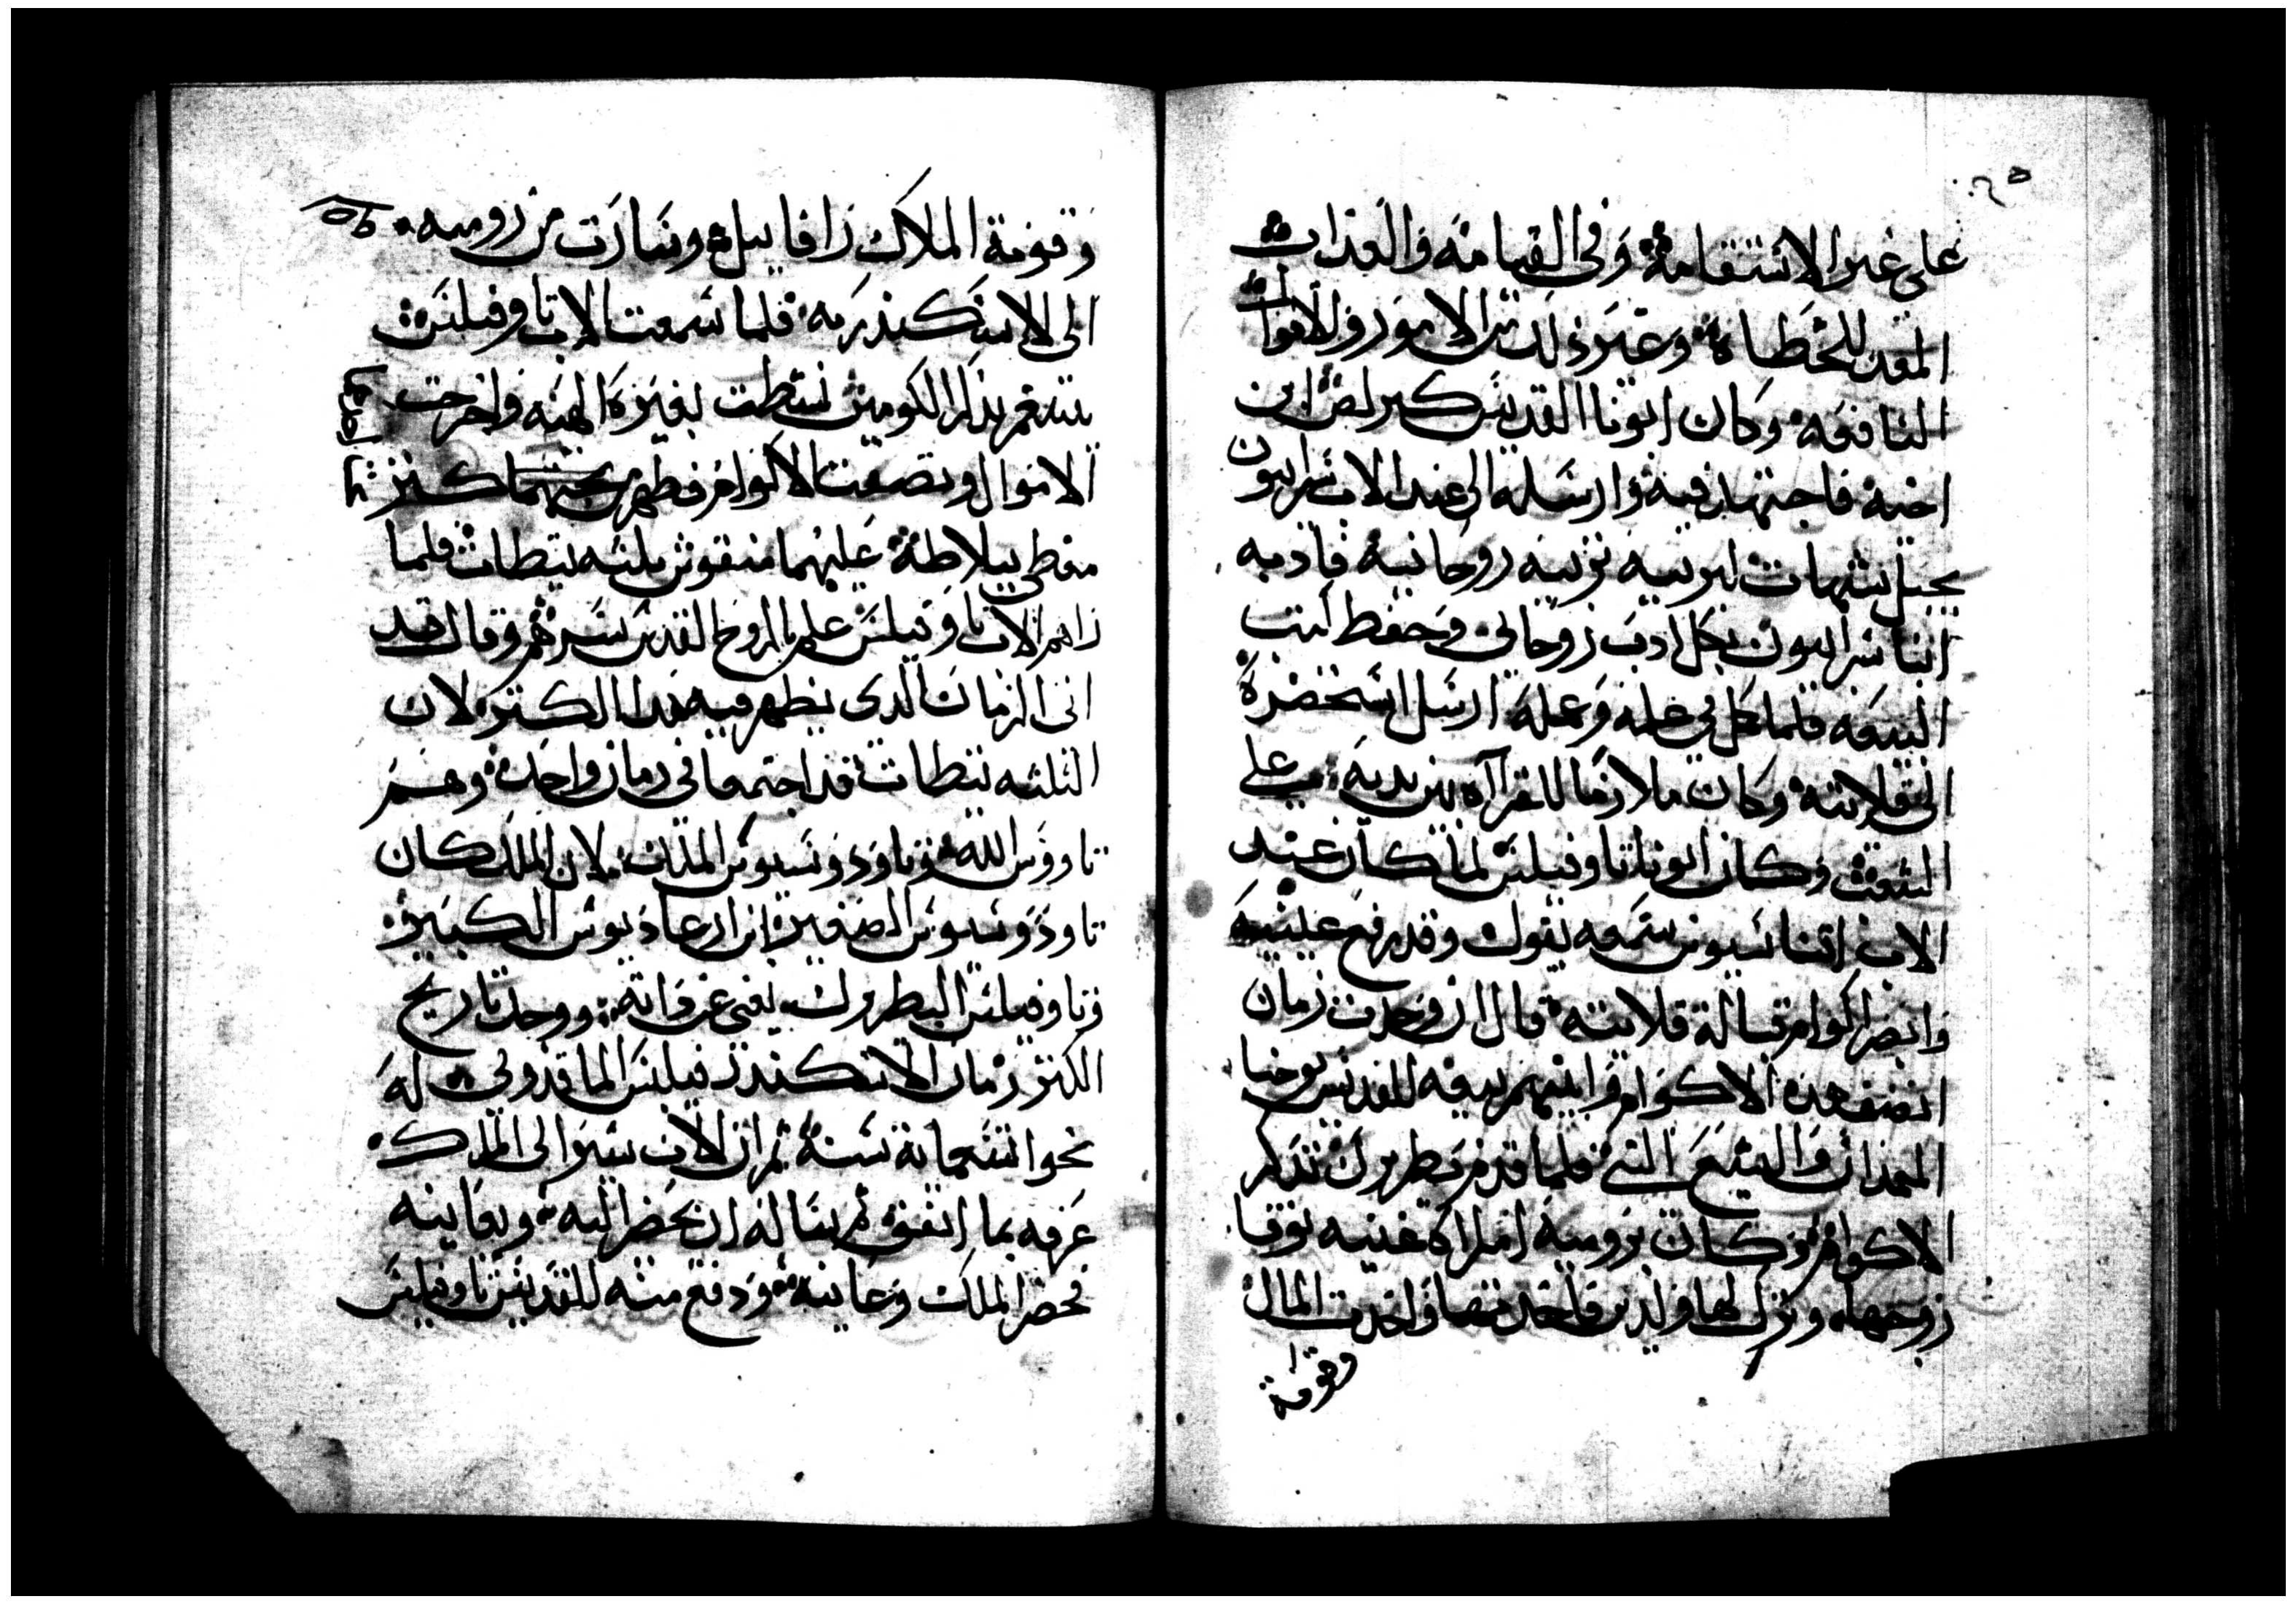 على غير الاستقامة وفى القيامة والعذاب
المعد للخطاة وغير ذلك من الامور والاقوال
النافعة وكان ابونا القديس كيرلص ابن
اخته فاجتهد فيه وارسله الى عند الاب سرابيون
بجبل شيهات ليربيه تربيه روحانيه فادبه
انبا سرابيون بكل ادب روحانى وحفظ كتب
البيعه فلما كمل فى علمه وعمله ارسل استحضره
الى قلايته وكان ملازما للقرآه بين يديه على
الشعب وكان ابونا تاوفيلس لما كان عند
الاب اتناسيوس سمعه يقول وقد رفع عينيه
وابصر اكوام قبالة قلايته قال ان وجدت زمان
انضف هذه الاكوام وابنيهم بيعه للقديس يوحنا
المعمدان واليشع النبى فلما قدم بطريرك تذكر
الاكوام وكان برومية امراة غنيه توفا
زوجها وترك لها ولدين فاخدتهما واخدت المال
وقومة
وقومة الملاك رافاييل وسارت من رومية
الى الاسكندرية فلما سمعت الاب تاوفيلس
يتمم بذكر الكومين نشطت بغيرة الهية واخرجت
الاموال ونضفت الاكوام فظهر تحتهما كنز
مغطى ببلاطة عليهما منقوش ثلثه ثيطات فلما
راهم الاب تاوفيلس علم بالروح القدس سرهم وقال قد
اتى الزمان الدى يظهر فيه هدا الكنز لان
الثلثه ثيطات قد اجتمعا فى زمان واحد وهم
تاووس الله وتاودوسيوس الملك لان الملك كان
تاودوسيوس الصغير ابن ارغاديوس الكبير
وتاوفيلس البطريرك يعنى عن داته ووجد تاريخ
الكنز زمان الاسكندر فيلبس الماقدونى له
نحو سبعماية سنة ثم ان الاب سير الى الملك
عرفه بما اتفق ثم يساله ان يحضر اليه ويعاينه
فحضر الملك وعاينه ودفع منه للقديس تاوفيلس